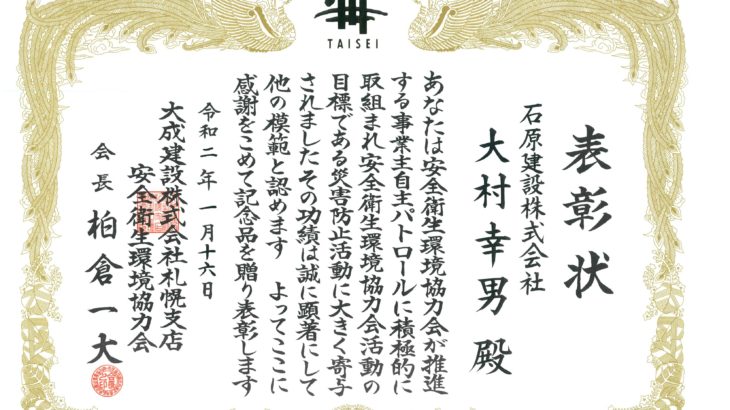 TAISEI
表彰状
石原建設株式会社
大村幸男 殿
あなたは安全衛生環境協力会が推進
する事業主自主パトロールに積極的に
取組まれ安全衛生環境協力会活動の
目標である災害防止活動に大きく寄与
されましたその功績は誠に顕著にして
他の模範と認めます よってここに
感謝をこめて記念品を贈り表彰します
令和二年一月十六日
大成建設株式会社札幌支店
安全衛生環境協力会
会長 柏倉一大